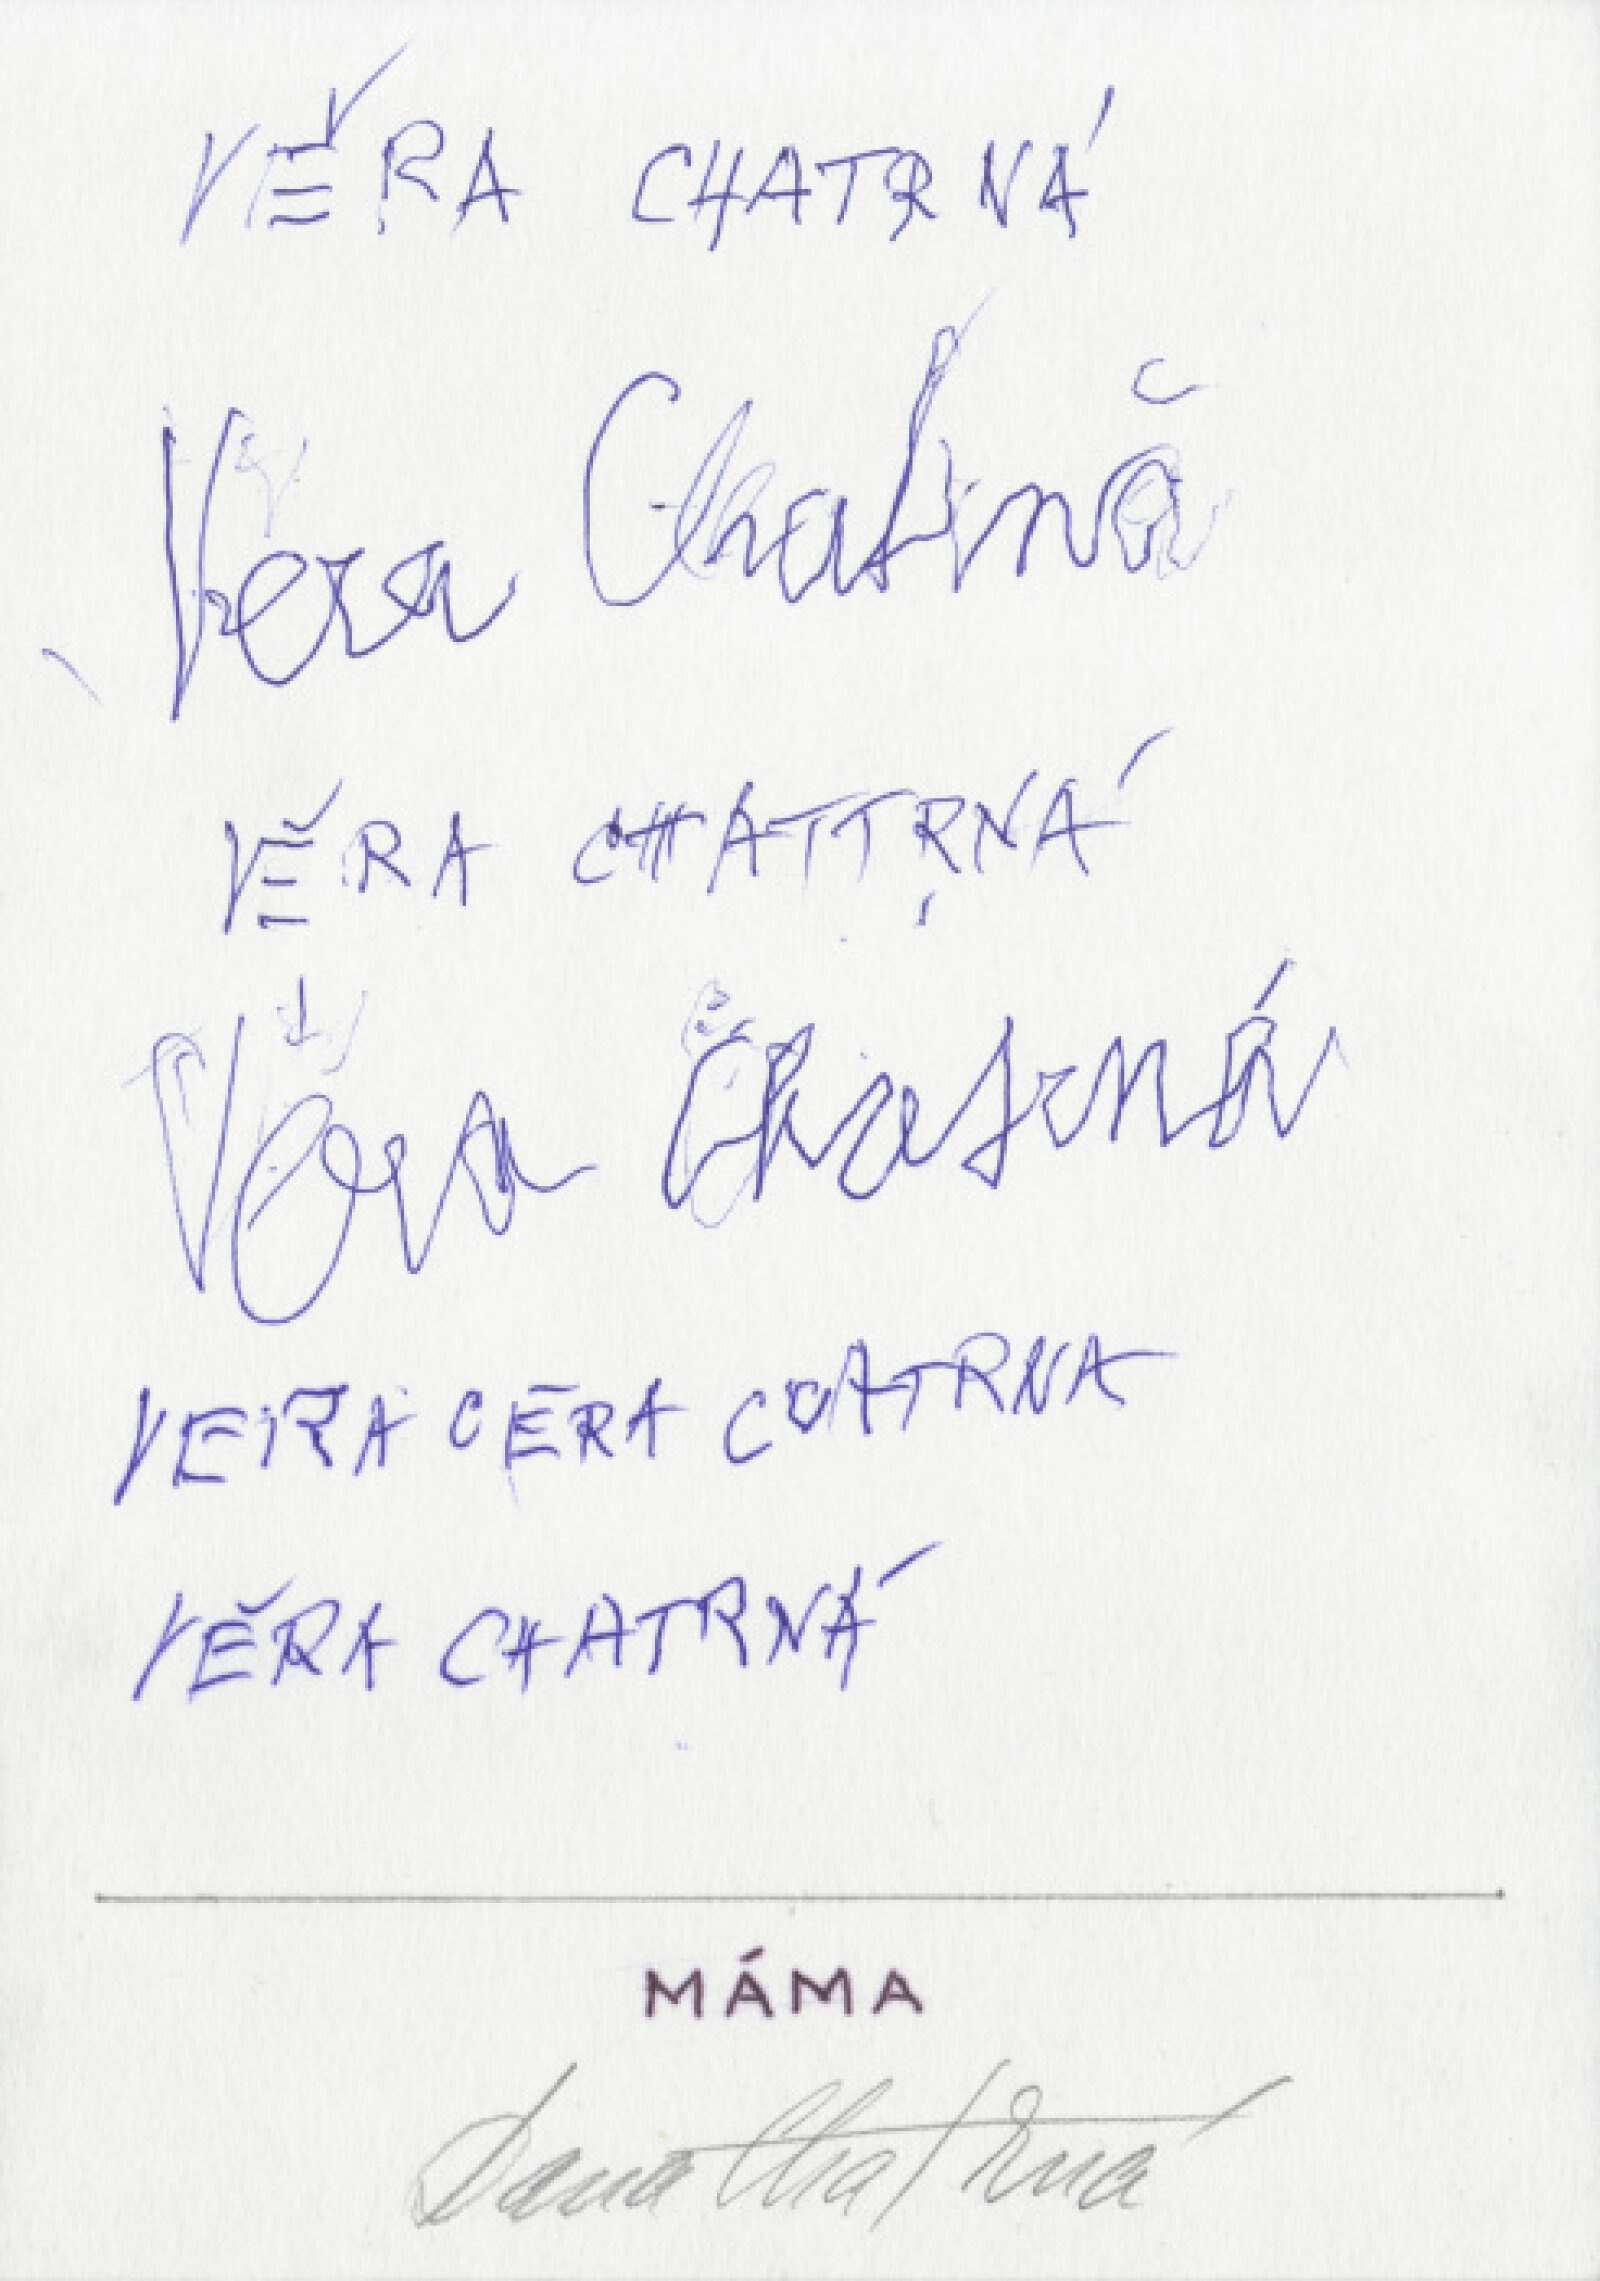 VĚRA CHATRNÁ
Věra Chatrnă
VĚRA CHATTRNÁ
Věra Chatrná
VEIRA CĒRA CUATRNA
VĚRA CHATRNÁ
MÁMA
Dana Chatrná